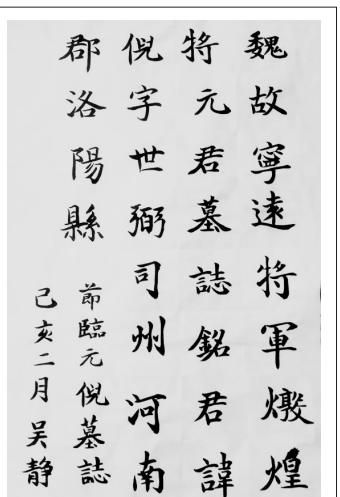 魏故寧遠將軍燉煌
將元君墓誌銘君諱
倪字世弼司州河南
郡洛陽縣
節臨元倪墓誌
己亥二月吴静